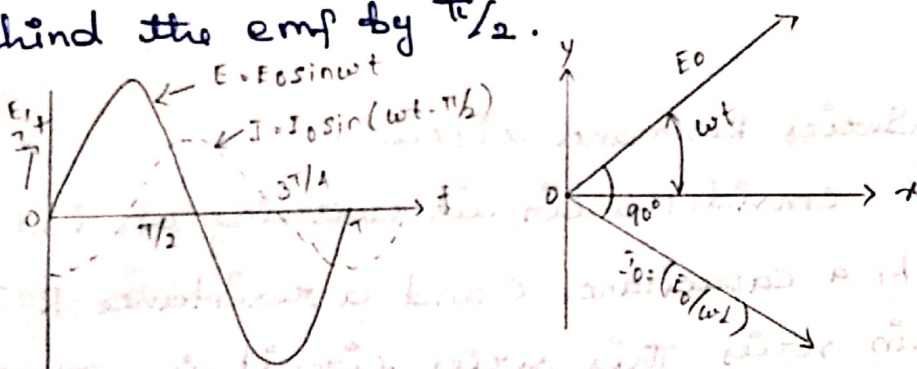 hind the emf by π/2.
E = E0 sin ωt
E,I
I = I0 sin(ωt - π/2)
3T/4
0
T/2
T
t
y
E0
ωt
0
90°
x
I0 = (E0/ωL)